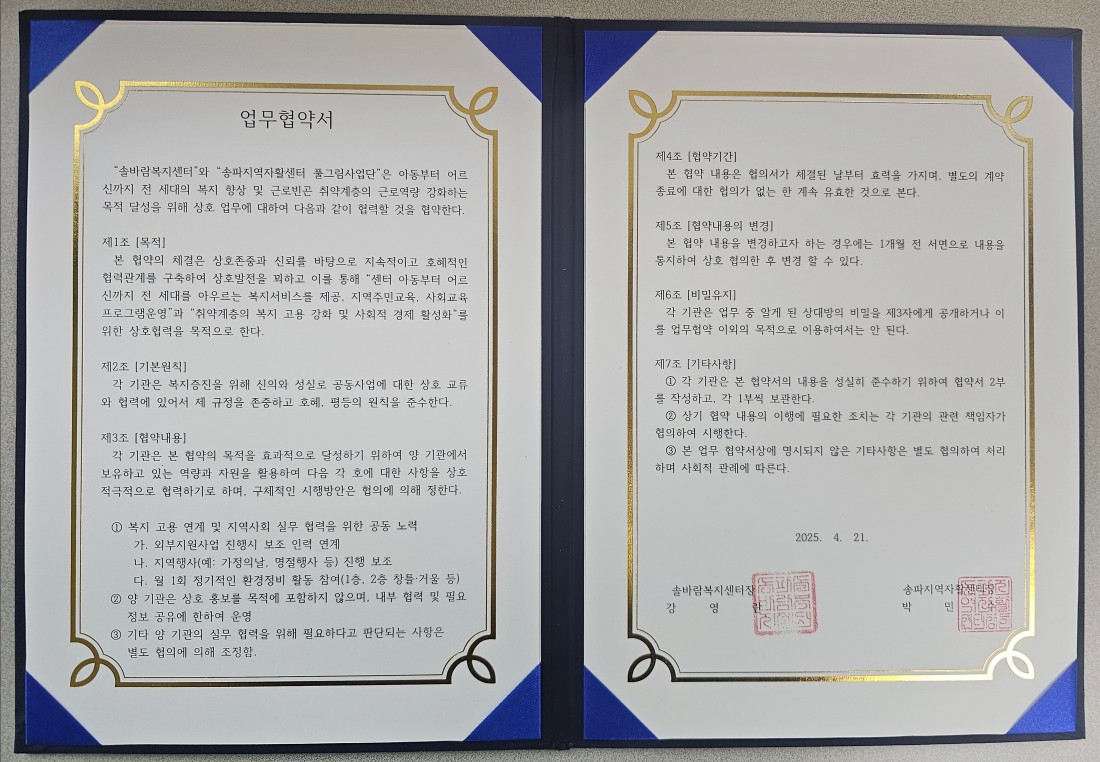 업무협약서
"솔바람복지센터"와 "송파지역자활센터 풀그림사업단"은 아동부터 어르
신까지 전 세대의 복지 향상 및 근로빈곤 취약계층의 근로역량 강화하는
목적 달성을 위해 상호 업무에 대하여 다음과 같이 협력할 것을 협약한다.
제1조 [목적]
본 협약의 체결은 상호존중과 신뢰를 바탕으로 지속적이고 호혜적인
협력관계를 구축하여 상호발전을 꾀하고 이를 통해 "센터 아동부터 어르
신까지 전 세대를 아우르는 복지서비스를 제공, 지역주민교육, 사회교육
프로그램운영"과 "취약계층의 복지 고용 강화 및 사회적 경제 활성화"를
위한 상호협력을 목적으로 한다.
제2조 [기본원칙]
각 기관은 복지증진을 위해 신의와 성실로 공동사업에 대한 상호 교류
와 협력에 있어서 제 규정을 존중하고 호혜, 평등의 원칙을 준수한다.
제3조 [협약내용]
각 기관은 본 협약의 목적을 효과적으로 달성하기 위하여 양 기관에서
보유하고 있는 역량과 자원을 활용하여 다음 각 호에 대한 사항을 상호
적극적으로 협력하기로 하며, 구체적인 시행방안은 협의에 의해 정한다.
① 복지 고용 연계 및 지역사회 실무 협력을 위한 공동 노력
가. 외부지원사업 진행시 보조 인력 연계
나. 지역행사(예: 가정의날, 명절행사 등) 진행 보조
다. 월 1회 정기적인 환경정비 활동 참여(1층, 2층 창틀·거울 등)
② 양 기관은 상호 홍보를 목적에 포함하지 않으며, 내부 협력 및 필요
정보 공유에 한하여 운영
③ 기타 양 기관의 실무 협력을 위해 필요하다고 판단되는 사항은
별도 협의에 의해 조정함.
제4조 [협약기간]
본 협약 내용은 협의서가 체결된 날부터 효력을 가지며, 별도의 계약
종료에 대한 협의가 없는 한 계속 유효한 것으로 본다.
제5조 [협약내용의 변경]
본 협약 내용을 변경하고자 하는 경우에는 1개월 전 서면으로 내용을
통지하여 상호 협의한 후 변경 할 수 있다.
제6조 [비밀유지]
각 기관은 업무 중 알게 된 상대방의 비밀을 제3자에게 공개하거나 이
를 업무협약 이외의 목적으로 이용하여서는 안 된다.
제7조 [기타사항]
① 각 기관은 본 협약서의 내용을 성실히 준수하기 위하여 협약서 2부
를 작성하고, 각 1부씩 보관한다.
② 상기 협약 내용의 이행에 필요한 조치는 각 기관의 관련 책임자가
협의하여 시행한다.
③ 본 업무 협약서상에 명시되지 않은 기타사항은 별도 협의하여 처리
하며 사회적 관례에 따른다.
2025. 4. 21.
솔바람복지센터장
강 영 란
송파지역자활센터장
박 민 수